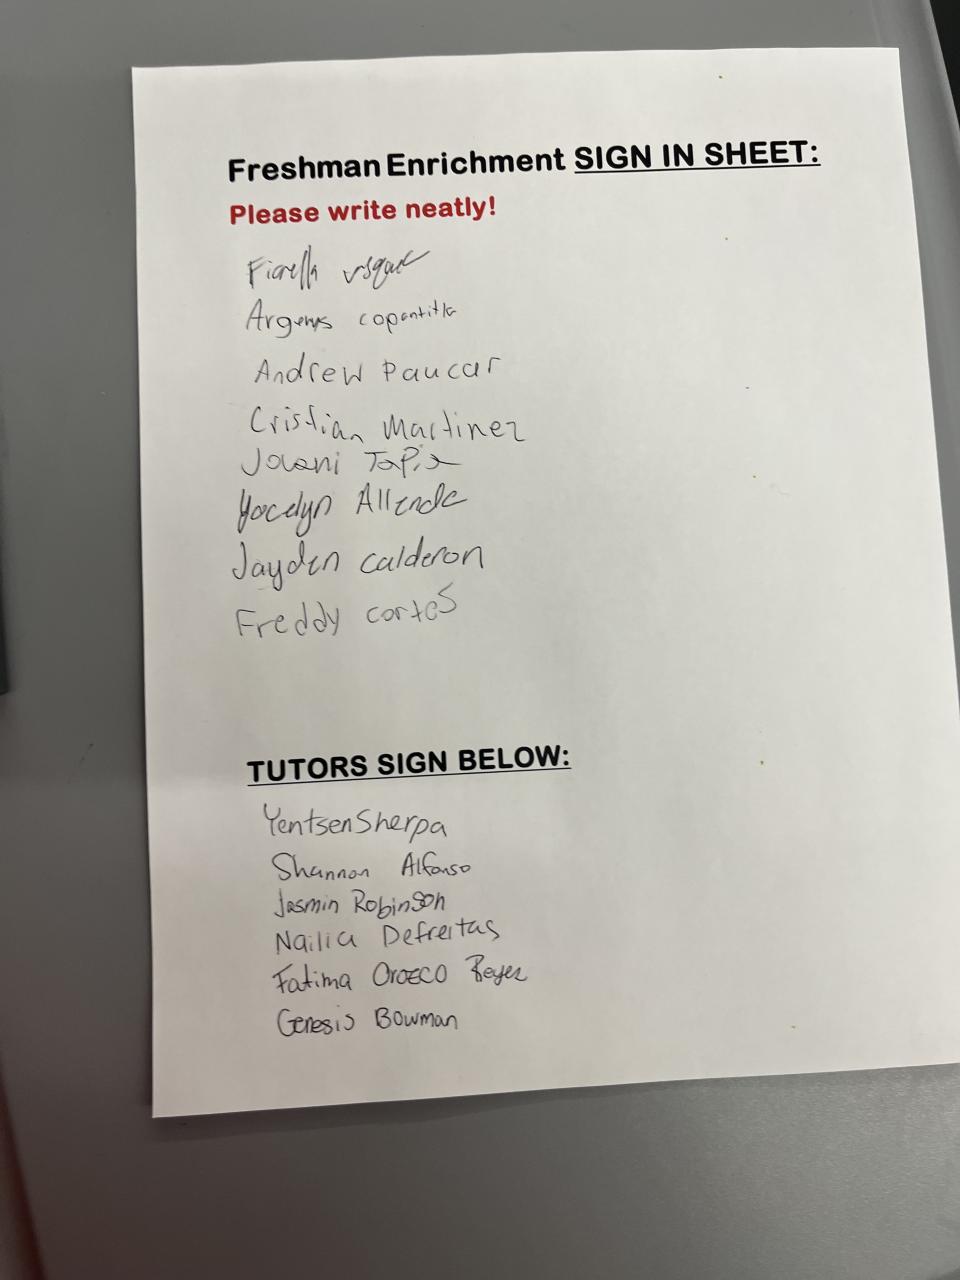 Freshman Enrichment SIGN IN SHEET:
Please write neatly!
Fiorella
Argenys copantitla
Andrew Paucar
Cristian Martinez
Jovani Tapia
Yocelyn Allende
Jayden Calderon
Freddy cortes
TUTORS SIGN BELOW:
Yentsen Sherpa
Shannon Alfonso
Jasmin Robinson
Nailia Defreitas
Fatima Orozco Reyes
Genesis Bowman